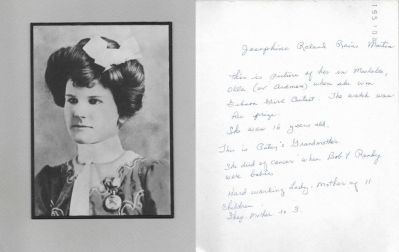 Josephine Roland Rains Martin
This is picture of her in
Okla (or Arkansas) when she won
Gibson Girl Contest. The watch was
the prize
She was 16 years old.
This is Grandmother
She died of cancer when Bob &
were babies
Hard working Lady. Mother of 11
children.
Step-Mother to 3.